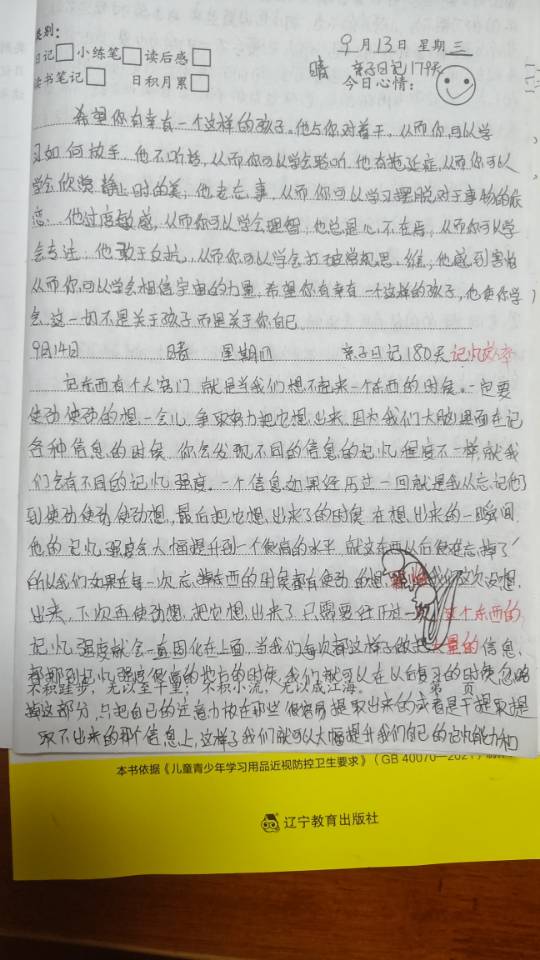 类别：
日记□ 小练笔□ 读后感□
读书笔记□ 日积月累□
9月13日 星期三
晴 亲子日记179天
今日心情：
希望你有幸有一个这样的孩子。他与你对着干，从而你可以学
习如何放手，他不听话，从而你可以学会聆听，他有拖延症，从而你可以
学会欣赏静止时的美；他老忘事，从而你可以学习摆脱对于事物的依
恋，他过度敏感，从而你可以学会理智，他总是心不在焉，从而你可以学
会专注；他敢于反抗，从而你可以学会打破常规思维，他感到害怕
从而你可以学会相信宇宙的力量，希望你有幸有一个这样的孩子，他使你学
会这一切不是关于孩子而是关于你自己
9月14日 晴 星期四 亲子日记180天 记忆效率
记东西有个大窍门 就是当我们想不起来一个东西的时候。一定要
使劲使劲的想一会儿，争取努力把它想出来，因为我们大脑里面在记
各种信息的时候 你会发现不同的信息的记忆程度不一样，就我
们会有不同的记忆强度。一个信息如果经历过一回就是我从忘记他了
到使劲使劲使劲想，最后把它想出来了的时候 在想出来的一瞬间
他的记忆强度会大幅提升到一个很高的水平 就这东西从后很难忘掉了
所以我们如果在每一次忘掉东西的时候都有使劲的想 我们这次没想
出来，下次再使劲想，把它想出来了 只需要经历过一次 这个东西的
记忆强度就会一直固化在上面，当我们每次都这样子做把大量的信息，
都挪到记忆强度很高的地方的时候，我们就可以在以后复习的时候忽略
不积跬步，无以至千里；不积小流，无以成江海。 第 页
掉这部分，只把自己的注意力放在那些很容易提取出来的或者是干提取提
取不出来的那个信息上，这样子我们就可以大幅提升我们自己的记忆能力和
本书依据《儿童青少年学习用品近视防控卫生要求》（GB 40070—2021）
辽宁教育出版社